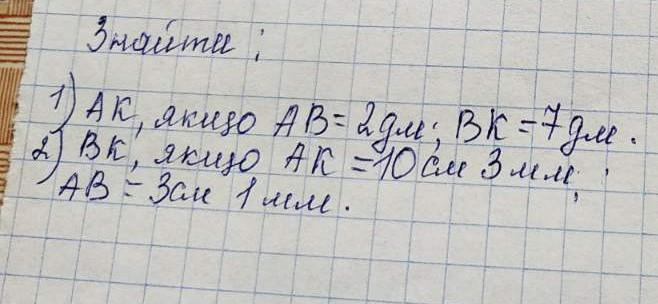 Знайти:
1) АК, якщо АВ = 2дм; ВК = 7дм.
2) ВК, якщо АК = 10см 3мм;
АВ = 3см 1мм.